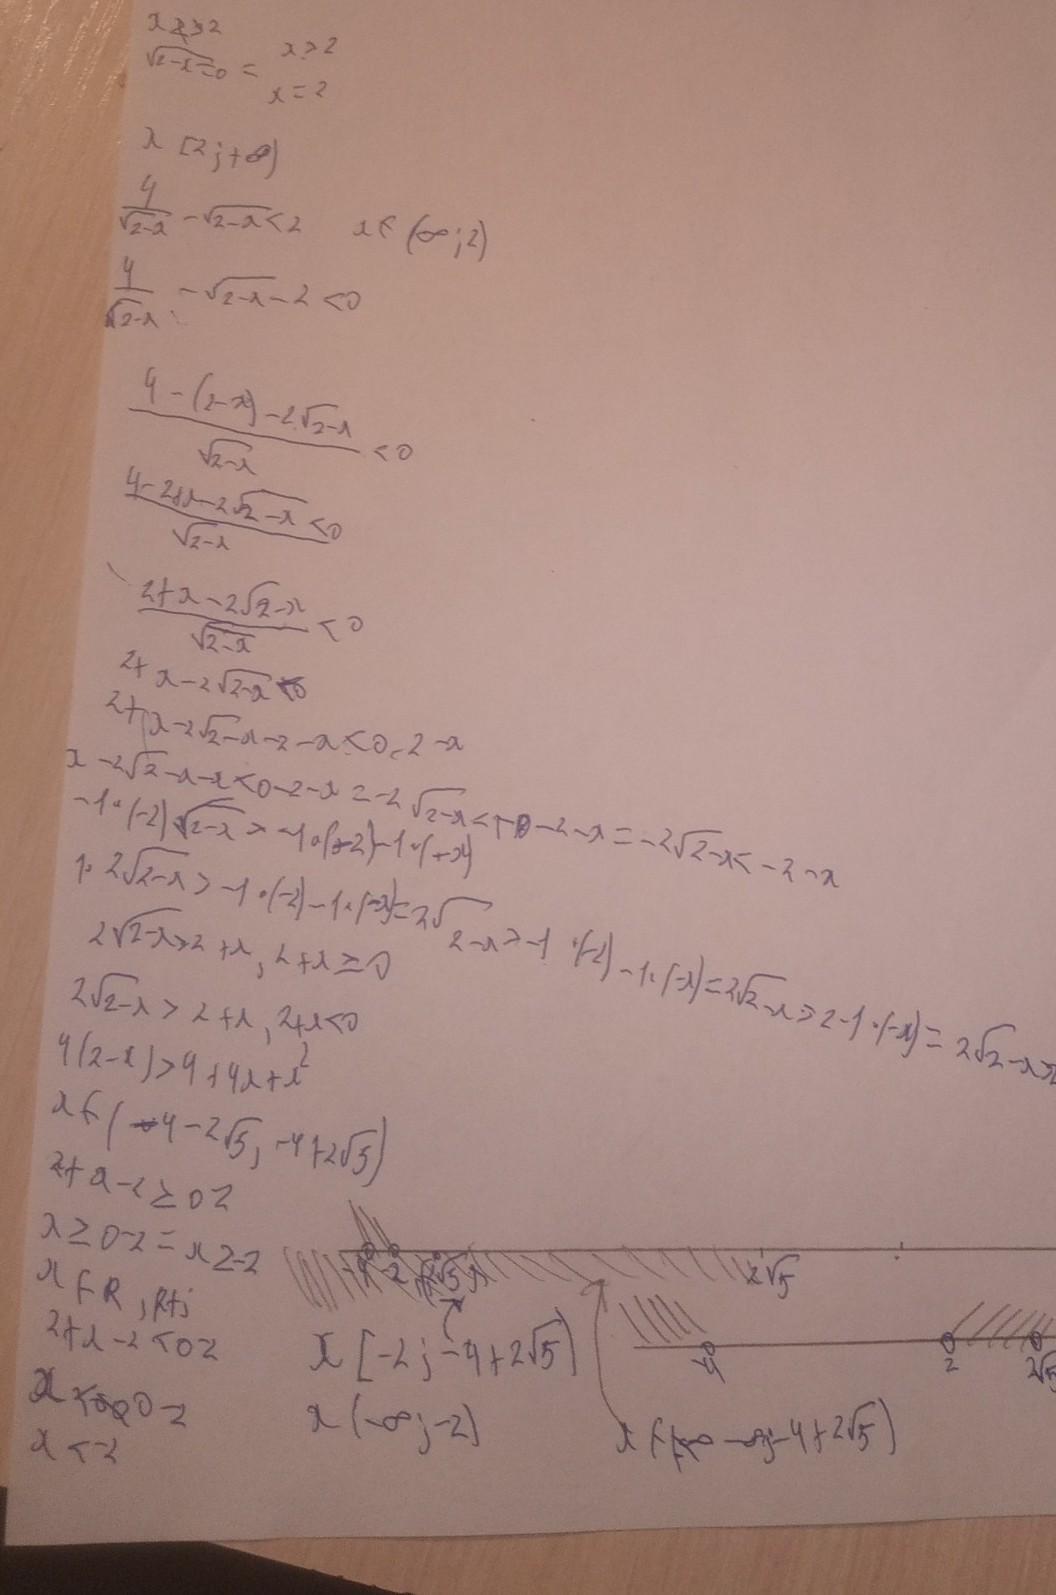 x≥>2
√2-x=0 = x>2
x=2
x [2;+∞)
4/√2-x -√2-x<2 x∈(∞;2)
4/√2-x -√2-x-2<0
4-(2-x)-2√2-x / √2-x <0
4-2+x-2√2-x / √2-x <0
2+x-2√2-x / √2-x <0
2+x-2√2-x<0
2+x-2√2-x-2-x<0-2-x
x-2√2-x-x<0-2-x=-2√2-x<-0-2-x=-2√2-x<-2-x
-1·(-2)√2-x>-1·(-2)-1·(-x)
1·2√2-x>-1·(-2)-1·(-x)=2√2-x>-1·(-2)-1·(-x)=2√2-x>2-1·(-x)=2√2-x>2
2√2-x>2+x, 2+x≥0
2√2-x>2+x, 2+x<0
4(2-x)>4+4x+x²
x∈(-4-2√5; -4+2√5)
2+x-2≥0-2
x≥0-2=x≥-2
x∈R
2+x-2<0-2
x<0-2
x<-2
-2 2√5
x [-2;-4+2√5)
-4 2 2√5
x (-∞;-2)
x∈ -∞;-4+2√5)